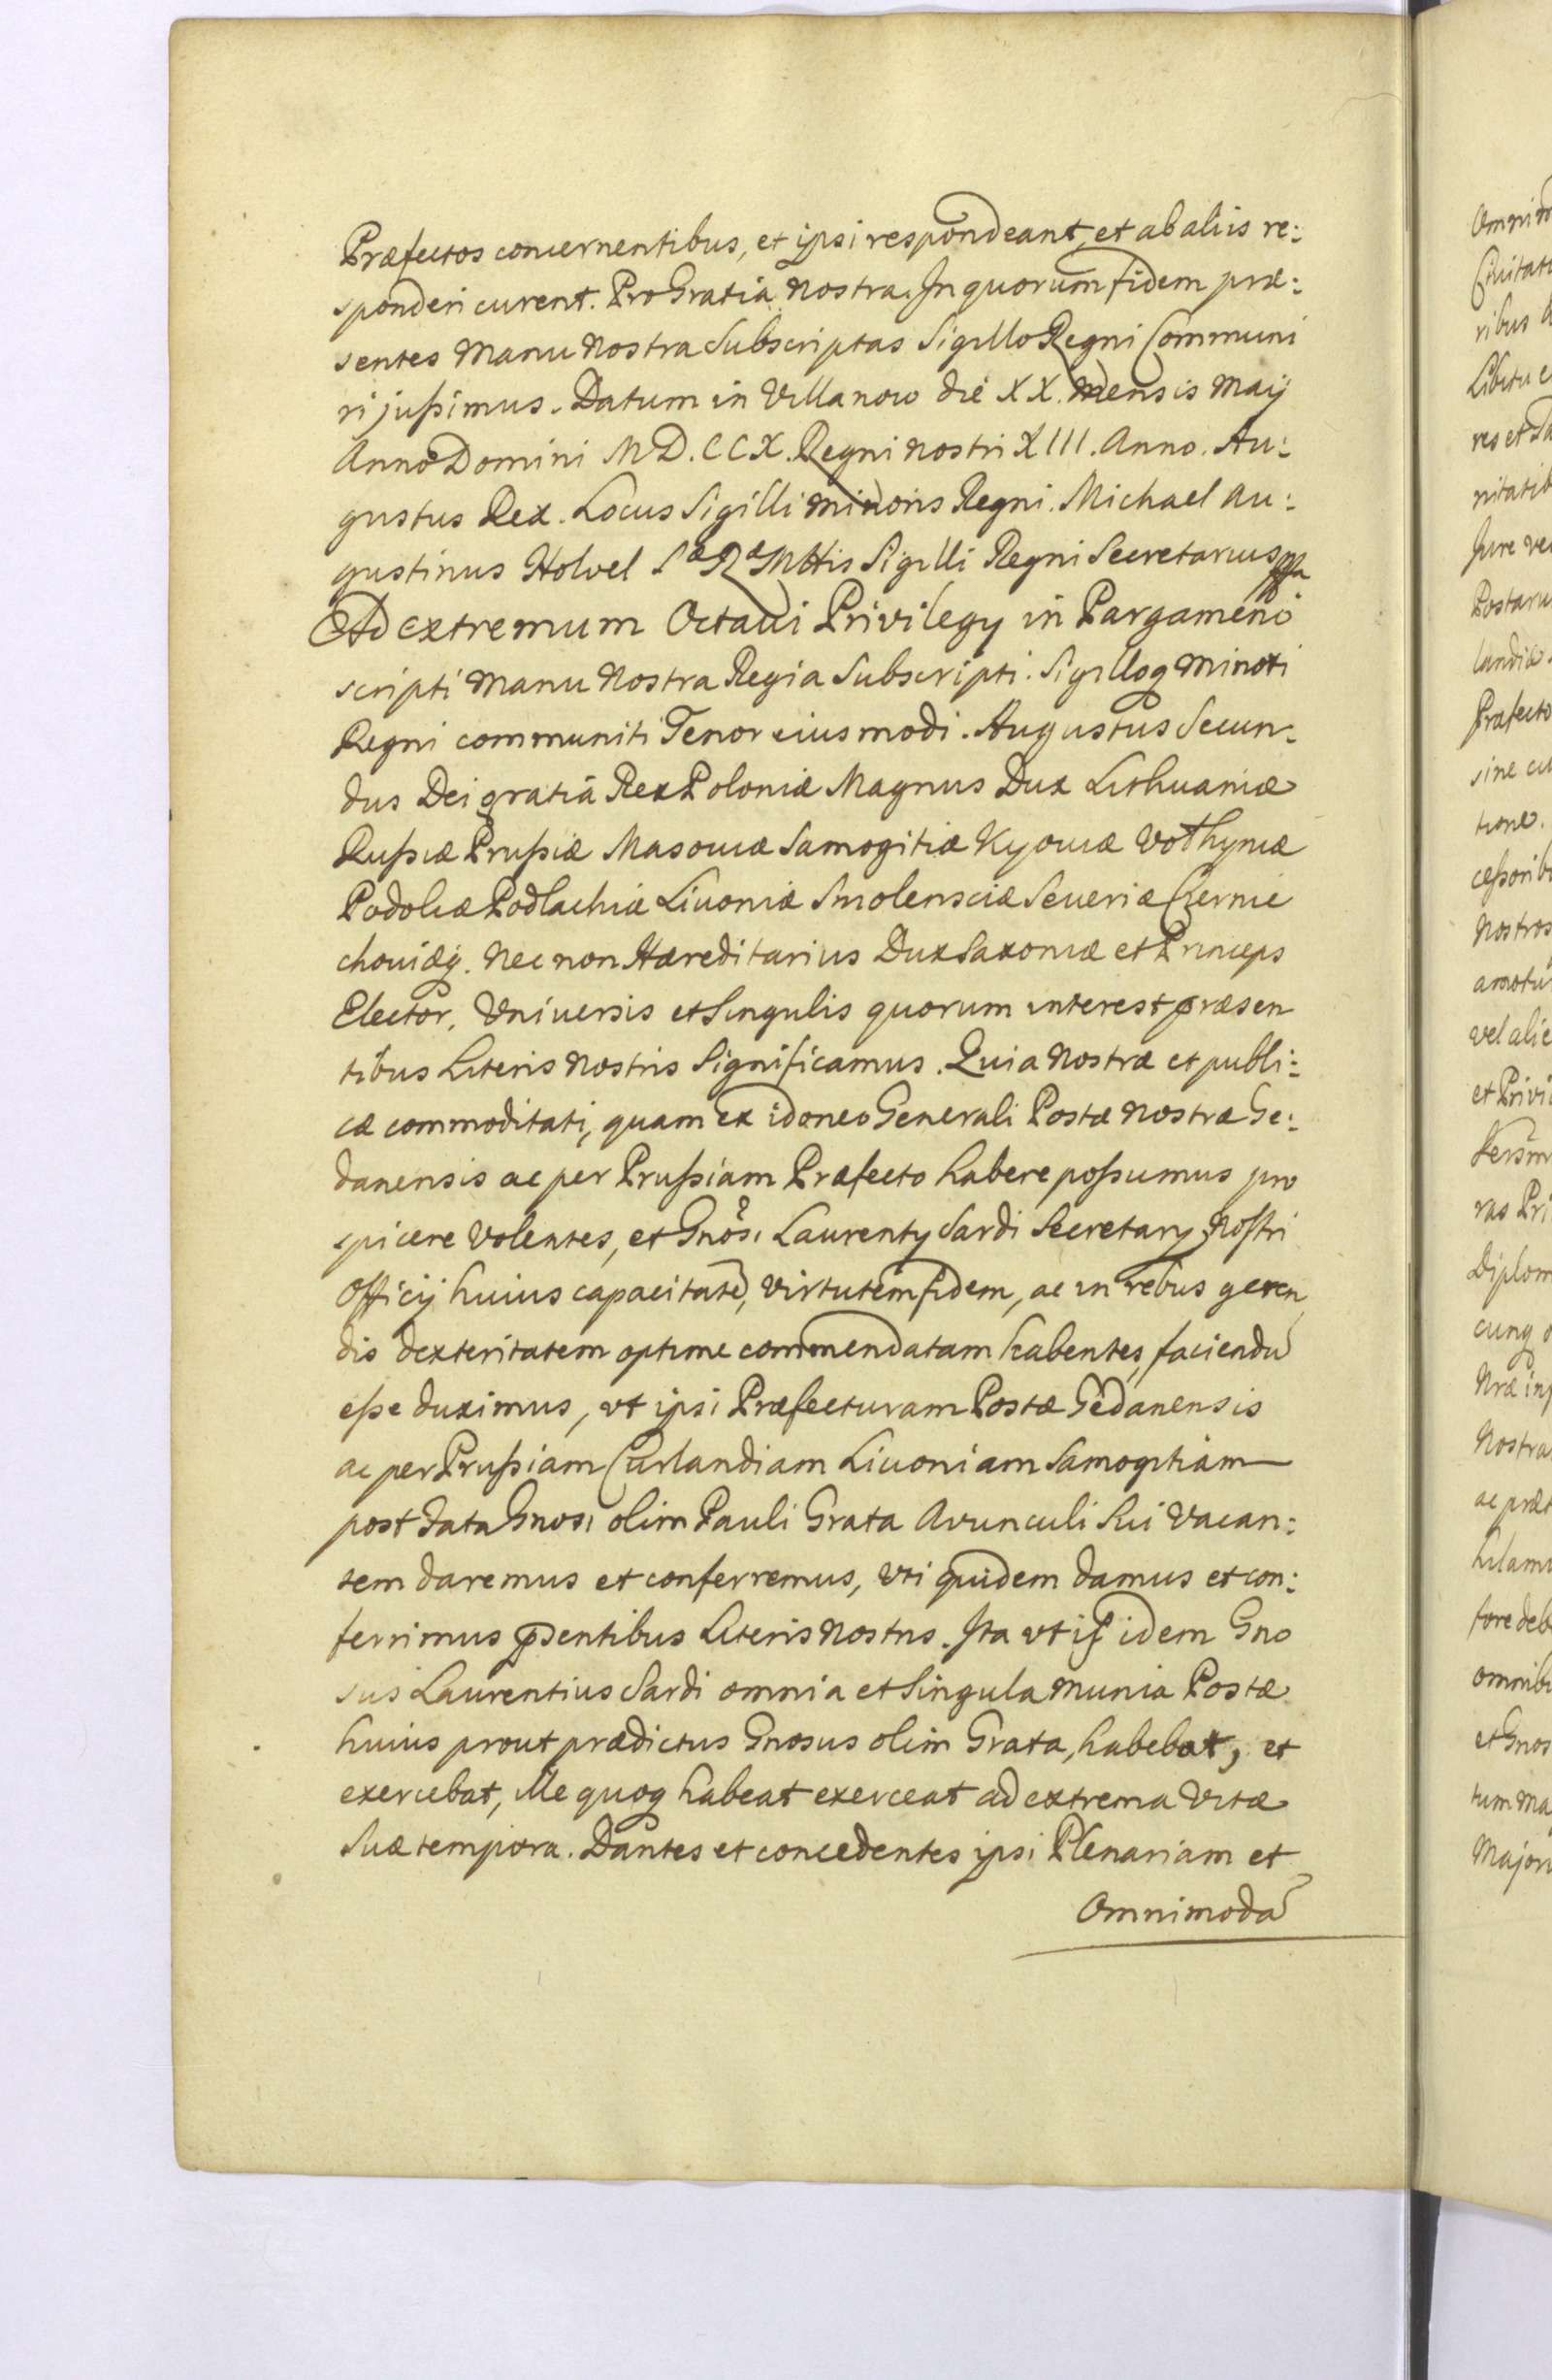 Præfectos concernentibus, et ipsi respondeant, et ab aliis re:
sponderi curent. Pro Gratia Nostra. In quorum fidem præ:
sentes Manu Nostra Subscriptas Sigillo Regni Communi
ri jußimus. Datum in Villanow die XX. Mensis Maij
Anno Domini M.D.CCX. Regni Nostri XIII. Anno. Au:
gustus Rex. Locus Sigilli Minoris Regni. Michael Au:
gustinus Holvel Sæ Ræ Mttis Sigilli Regni Secretarius
Ad extremum Octaui Privilegy in Pargameno
scripti Manu Nostra Regia Subscripti. Sigilloq Minori
Regni communiti Tenor eiusmodi. Augustus Secun:
dus Dei gratiâ Rex Poloniæ Magnus Dux Lithuaniæ
Rußiæ Prußiæ Masouiæ Samogitiæ Kyouiæ Volhyniæ
Podoliæ Podlachiæ Liuoniæ Smolensciæ Seueriæ Czernie
chouiæq. Nec non Hæreditarius Dux Saxoniæ et Princeps
Elector. Vniuersis et Singulis quorum interest præsen
tibus Literis Nostris Significamus. Quia Nostræ et publi:
cæ commoditati, quam ex idoneo Generali Postæ Nostræ Ge:
danensis ac per Prußiam Præfecto habere poßumus pro
spicere Volentes, et Gnosi Laurenty Sardi Secretary Nostri
Officij huius capacitatē, Virtutem fidem, ac in rebus geren
dis dexteritatem optime commendatam habentes, faciendū
eße duximus, vt ipsi Præfecturam Postæ Gedanensis
ac per Prußiam Curlandiam Liuoniam Samogitiam
post data Gnosi olim Pauli Grata Avunculi Sui Vacan:
tem daremus et conferremus, Vti quidem damus et con:
ferrimus psentibus Literis Nostris. Ita vt idem Gno
sus Laurentius Sardi omnia et Singula Munia Postæ
huius prout prædictus Gnosus olim Grata, habebat, et
exercebat, Ille quoq habeat exerceat ad extrema Vitæ
Suæ tempora. Dantes et concedentes ipsi Plenariam et
Omnimodā
Postaru
landiæ.
Præfecto
sine
Nostros
vel alie
et Privi
Diplom
Nostra
fore deb
omnib
et Gnos
tum Ma
Major